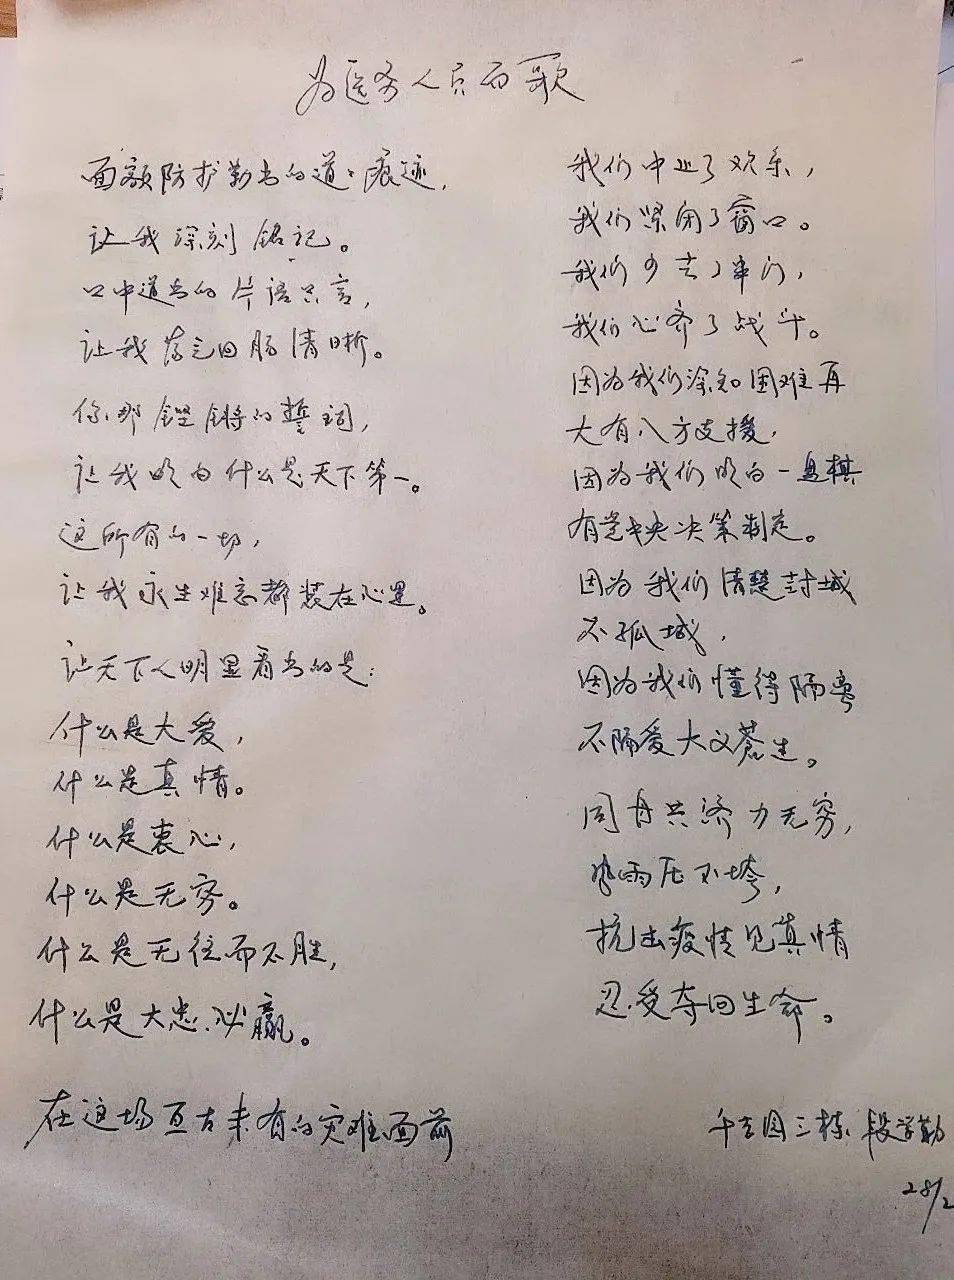 为医务人员而歌
面额防护勒出的道道痕迹,
让我深刻铭记。
口中道出的片语只言,
让我荡气回肠清晰。
你那铿锵的誓词,
让我明白什么是天下第一。
这所有的一切,
让我永生难忘都装在心里。
让天下人明显看出的是:
什么是大爱,
什么是真情。
什么是衷心,
什么是无穷。
什么是无往而不胜,
什么是大忠必赢。
在这场亘古未有的灾难面前
我们中止了欢乐,
我们紧闭了窗口。
我们少去了串门,
我们心齐了战斗。
因为我们深知困难再
大有八方支援,
因为我们明白一盘棋
有党中央决策制定。
因为我们清楚封城
不孤城,
因为我们懂得隔离
不隔爱大义苍生。
同舟共济力无穷,
风雨压不垮,
抗击疫情见真情
忍受夺回生命。
千吉园三栋 段学勤
28/2